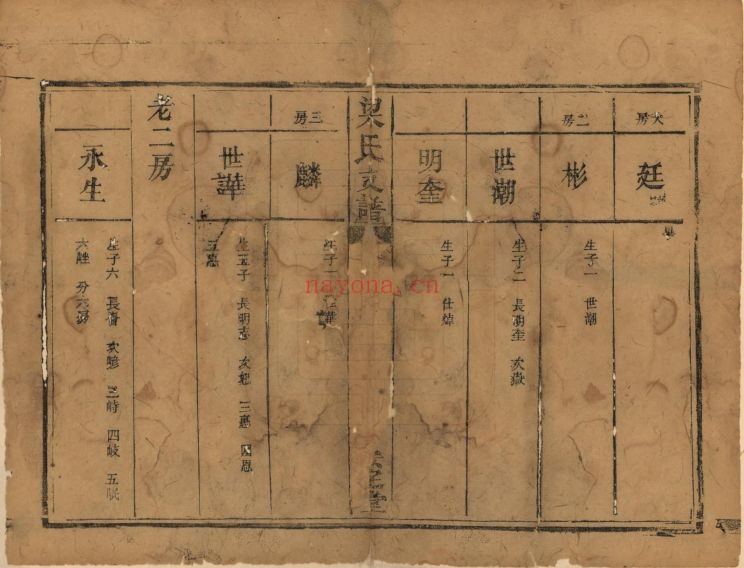 大房
廷
二房
彬
生子一 世潮
世潮
生子二 長明奎 次嶽
明奎
生子一 仕焯
梁氏支譜
三房
麟
生子一 世譁
世譁
生五子 長明志 次恕 三憲 四恩
五惠
老二房
永生
生子六 長 次 三時 四岐 五
六 分六房
nayona.cn